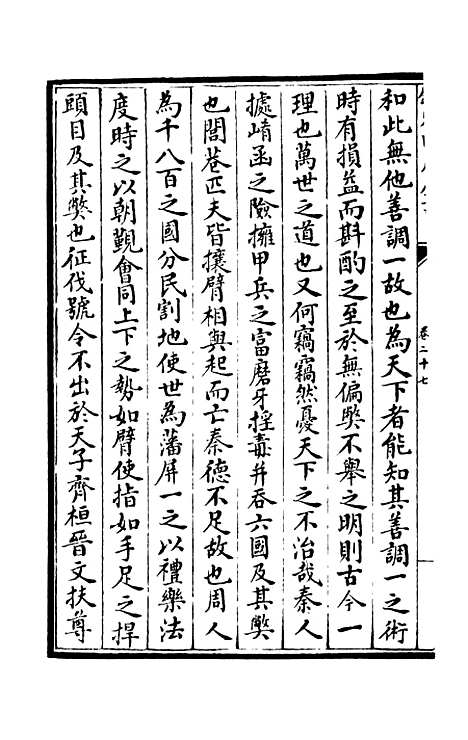 和此無他善調一故也為天下者能知其善調一之術
時有損益而斟酌之至於無偏獘不舉之明則古今一
理也萬世之道也又何竊竊然憂天下之不治哉秦人
據崤函之險擁甲兵之富磨牙揺毒并吞六國及其獘
也閭巷匹夫皆攘臂相與起而亡秦德不足故也周人
為千八百之國分民割地使世為藩屏一之以禮樂法
度時之以朝覲會同上下之勢如臂使指如手足之捍
頭目及其獘也征伐號令不出於天子齊桓晉文扶尊
卷二十七